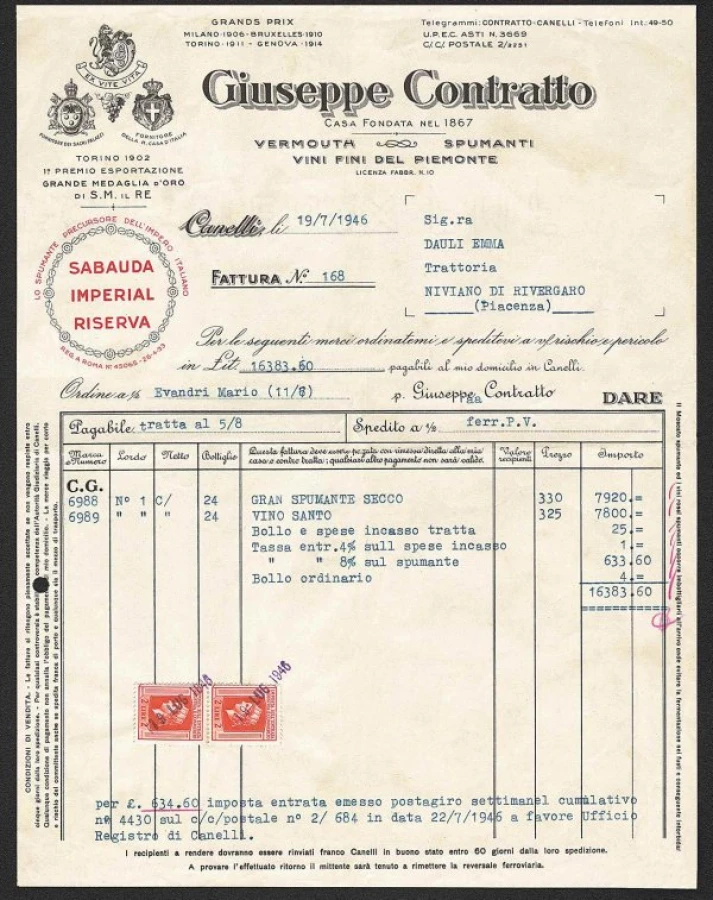 GRANDS PRIX
MILANO-1906-BRUXELLES-1910
TORINO-1911 - GENOVA-1914
Telegrammi: CONTRATTO-CANELLI - Telefoni Int: 49-50
U.P.E.C. ASTI N. 3669
C/C/ POSTALE 2/2251
EX VITE VITA
FORNITORE DEI SACRI PALAZZI
FORNITORE DELLA R. CASA D'ITALIA
Giuseppe Contratto
CASA FONDATA NEL 1867
VERMOUTH SPUMANTI
VINI FINI DEL PIEMONTE
LICENZA FABBR. N. 10
TORINO 1902
1º PREMIO ESPORTAZIONE
GRANDE MEDAGLIA D'ORO
DI S.M. IL RE
LO SPUMANTE PRECURSORE DELL'IMPERO ITALIANO
SABAUDA
IMPERIAL
RISERVA
REG. A ROMA Nº 45065-26-4-33
Canelli, li 19/7/1946
FATTURA Nº. 168
Sig.ra
DAULI EMMA
Trattoria
NIVIANO DI RIVERGARO
(Piacenza)
Per le seguenti merci ordinatemi e speditevi a v/ rischio e pericolo
in Lit. 16383.60 pagabili al mio domicilio in Canelli.
Ordine a ½ Evandri Mario (11/6) p. Giuseppe Contratto DARE
Pagabile: tratta al 5/8 Spedito a ½ ferr.P.V.
Marca e Numero Lordo Netto Bottiglie Questa fattura deve essere pagata con rimessa diretta alla mia casa o contro tratta; qualsiasi altro pagamento non sarà valido. Valore recipienti Prezzo Importo
C.G.
6988 Nº 1 C/ 24 GRAN SPUMANTE SECCO 330 7920.=
6989 " " " 24 VINO SANTO 325 7800.=
Bollo e spese incasso tratta 25.=
Tassa entr.4% sull spese incasso 1.=
" " 8% sul spumante 633.60
Bollo ordinario 4.=
16383.60
2 LIRE 2
2 LIRE 2
19 LUG 1946
19 LUG 1946
per £. 634.60 imposta entrata emesso postagiro settimanel cumulativo
nº 4430 sul c/c/postale nº 2/ 684 in data 22/7/1946 a favore Ufficio
Registro di Canelli.
I recipienti a rendere dovranno essere rinviati franco Canelli in buono stato entro 60 giorni dalla loro spedizione.
A provare l'effettuato ritorno il mittente sarà tenuto a rimettere la reversale ferroviaria.
CONDIZIONI DI VENDITA. - Le fatture si ritengono pienamente accettate se non vengono respinte entro
cinque giorni dalla loro spedizione. - Per qualsiasi controversia è stabilita la competenza dell'Autorità Giudiziaria di Canelli.
Qualunque condizione di pagamento non annulla l'obbligo del pagamento al mio domicilio. - La merce viaggia per conto
e rischio del committente anche se spedita franca di porto e qualunque sia il mezzo di trasporto.
Il Moscato spumante ed i vini rossi spumanti occorre imbottigliarli all'arrivo onde evitare la fermentazione nei fusti e conseguente intorbidar